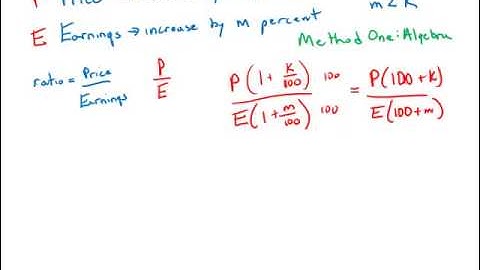 E Earnings → increase by m percent
m < k
Method One: Algebra
ratio = Price / Earnings
P / E
P(1 + k/100) 100 / E(1 + m/100) 100 = P(100 + k) / E(100 + m)